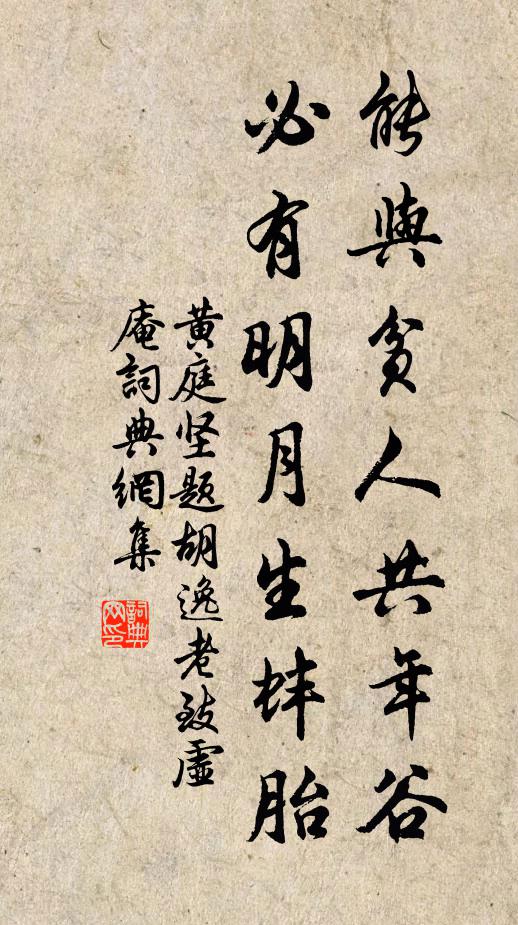 能與貧人共年谷
必有明月生蚌胎
黄庭坚题胡逸老致虛
庵詞典網集
詞典
网印